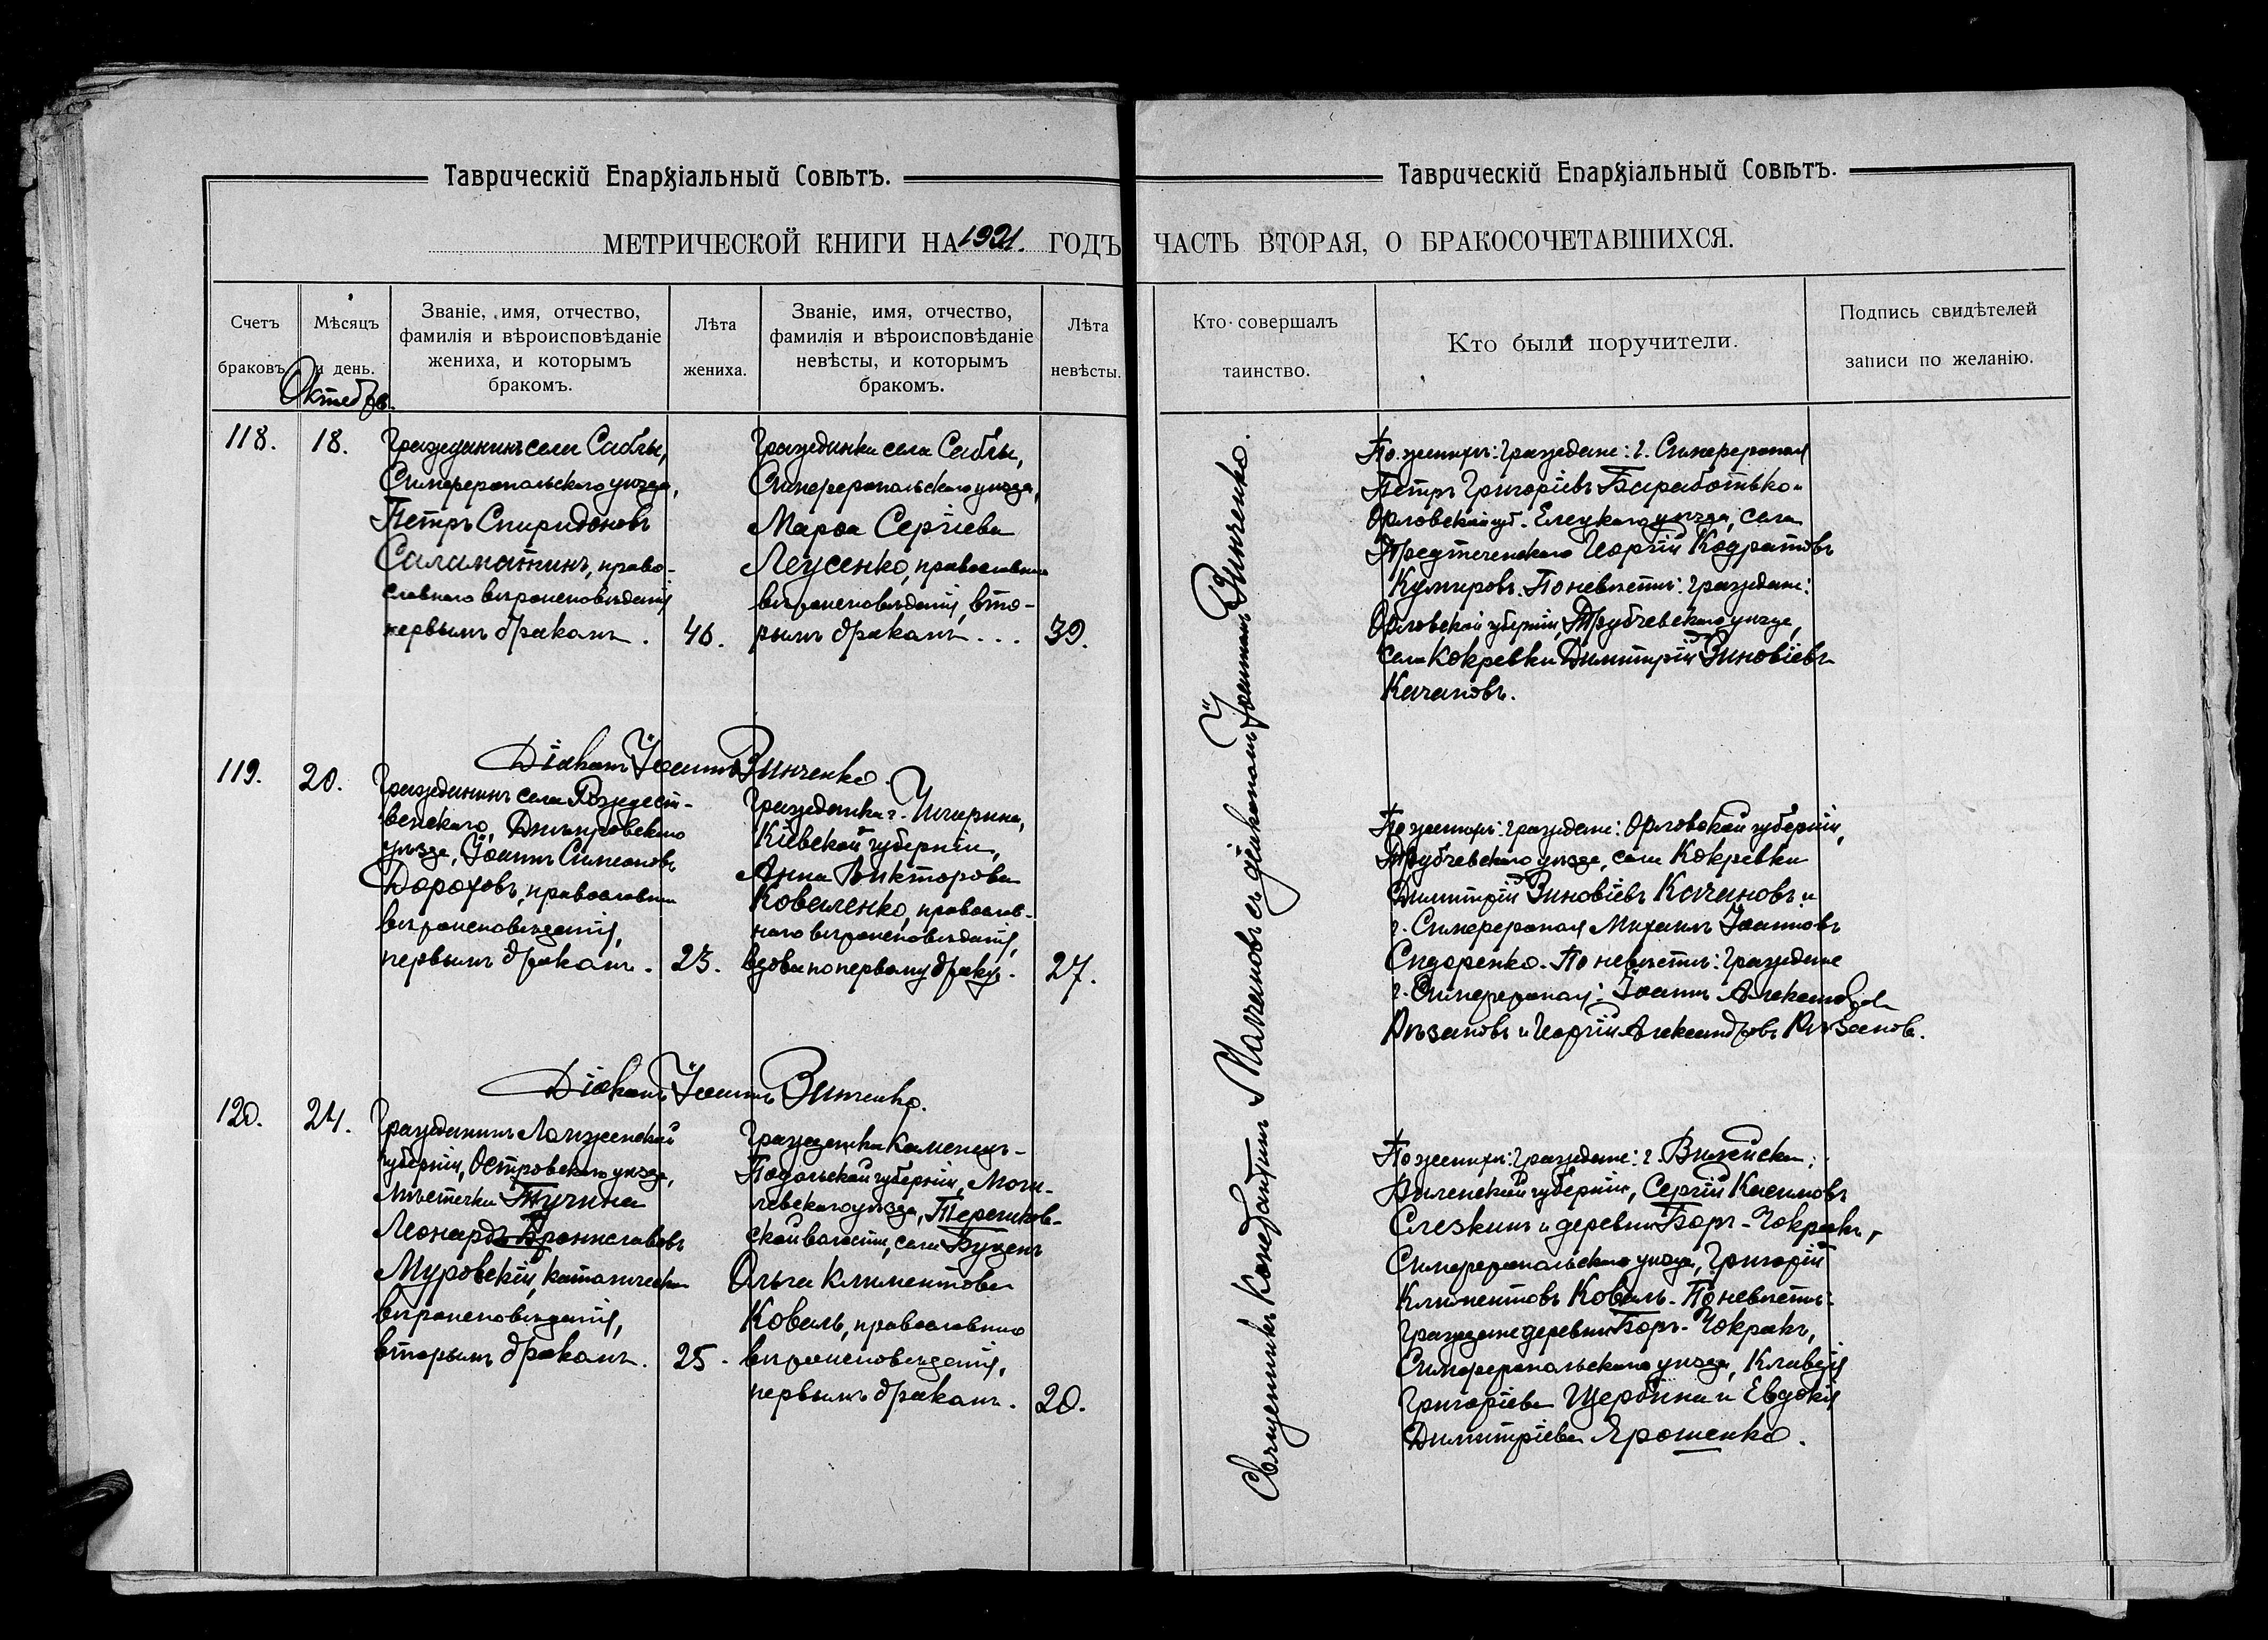 Таврическій Епархіальный Совѣтъ.
МЕТРИЧЕСКОЙ КНИГИ НА 1921. ГОДЪ
Счетъ браковъ.
Мѣсяцъ и день.
Званіе, имя, отчество,
фамилія и вѣроисповѣданіе
жениха, и которымъ
бракомъ.
Лѣта
жениха.
Званіе, имя, отчество,
фамилія и вѣроисповѣданіе
невѣсты, и которымъ
бракомъ.
Лѣта
невѣсты.
Октябрь.
118.
18.
Гражданинъ села Саблы,
Симферопольскаго уѣзда,
Петръ Спиридоновъ
Саламатинъ, право-
славнаго вѣроисповѣданія
первымъ бракомъ.
46.
Гражданка села Саблы,
Симферопольскаго уѣзда,
Марѳа Сергіева
Леусенко, православнаго
вѣроисповѣданія, вто-
рымъ бракомъ...
39.
Діаконъ Іоаннъ Зинченко.
119.
20.
Гражданинъ села Рождест-
венскаго, Днѣпровскаго
уѣзда, Іоаннъ Симеоновъ
Дороховъ, православнаго
вѣроисповѣданія,
первымъ бракомъ.
23.
Гражданка г. Чигирина,
Кіевской губерніи,
Анна Викторова
Коваленко, православ-
наго вѣроисповѣданія,
вдова по первому браку.
27.
Діаконъ Іоаннъ Зинченко.
120.
24.
Гражданинъ Ломжинской
губерніи, Островскаго уѣзда,
мѣстечка Тучина
Леонардъ Брониславовъ
Муровскій, католическаго
вѣроисповѣданія,
вторымъ бракомъ.
25.
Гражданка Каменецъ-
Подольской губерніи, Моги-
левскаго уѣзда, Терешков-
ской волости, села Буценъ
Ольга Климентова
Коваль, православнаго
вѣроисповѣданія,
первымъ бракомъ.
20.
Таврическій Епархіальный Совѣтъ.
ЧАСТЬ ВТОРАЯ, О БРАКОСОЧЕТАВШИХСЯ.
Кто совершалъ
таинство.
Кто были поручители.
Подпись свидѣтелей
записи по желанію.
Священникъ Константинъ съ діакономъ Іоанномъ Зинченко.
По женихѣ: граждане: г. Симферополя
Петръ Григоріевъ Барабоtько и
Орловской губ. Елецкаго уѣзда, села
Предтеченскаго Георгій Кодратовъ
Кумировъ. По невѣстѣ: граждане:
Орловской губерніи, Трубчевскаго уѣзда,
села Кокревки Димитрій Зиновіевъ
Качановъ.
По женихѣ: граждане: Орловской губерніи,
Трубчевскаго уѣзда, села Кокревки
Димитрій Зиновіевъ Качановъ и
г. Симферополя Михаилъ Іоанновъ
Сидоренко. По невѣстѣ: граждане
г. Симферополя: Іоаннъ Александровъ
Рѣзановъ и Георгій Александровъ Рѣзановъ.
По женихѣ: граждане: г. Вилейска,
Виленской губерніи, Сергій Касимовъ
Слезкинъ и деревни Боръ-Чокракъ,
Симферопольскаго уѣзда, Григорій
Климентовъ Коваль. По невѣстѣ:
граждане деревни Боръ-Чокракъ,
Симферопольскаго уѣзда, Клавдія
Григоріева Щербина и Евдокія
Димитріева Ярошенко.